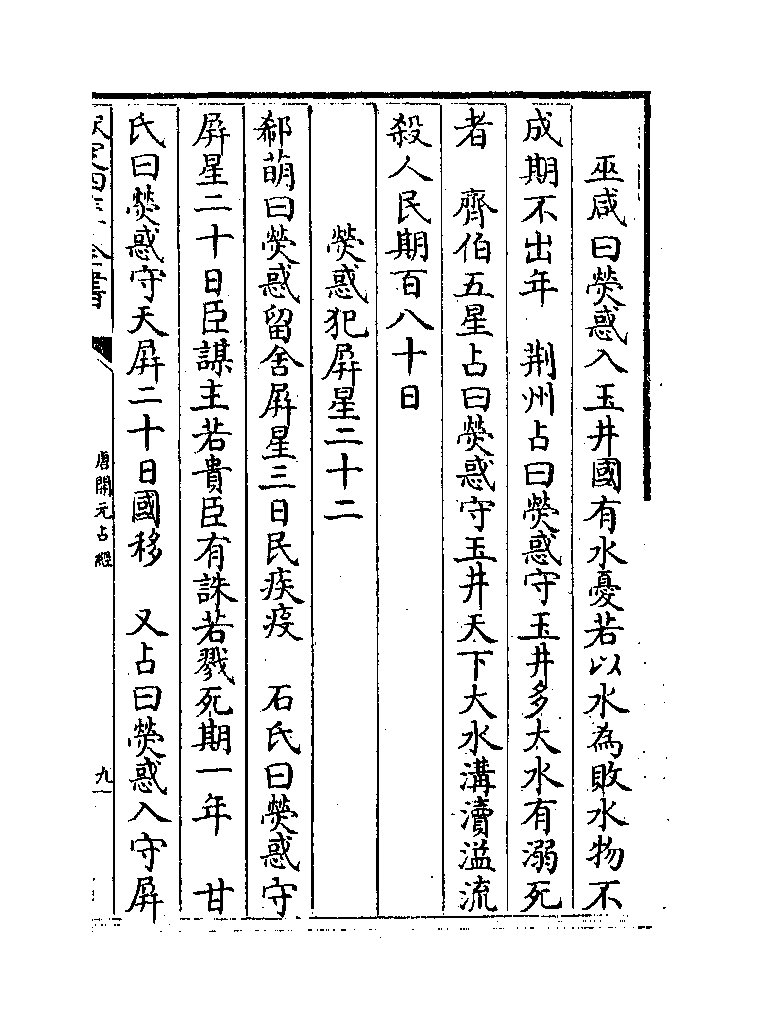 巫咸曰熒惑入玉井國有水憂若以水為敗水物不
成期不出年　荆州占曰熒惑守玉井多大水有溺死
者　齊伯五星占曰熒惑守玉井天下大水溝瀆溢流
殺人民期百八十日
熒惑犯屏星二十二
郗萌曰熒惑留舍屏星三日民疾疫　石氏曰熒惑守
屏星二十日臣謀主若貴臣有誅若戮死期一年　甘
氏曰熒惑守天屏二十日國移　又占曰熒惑入守屏
欽定四庫全書
唐開元占經
九